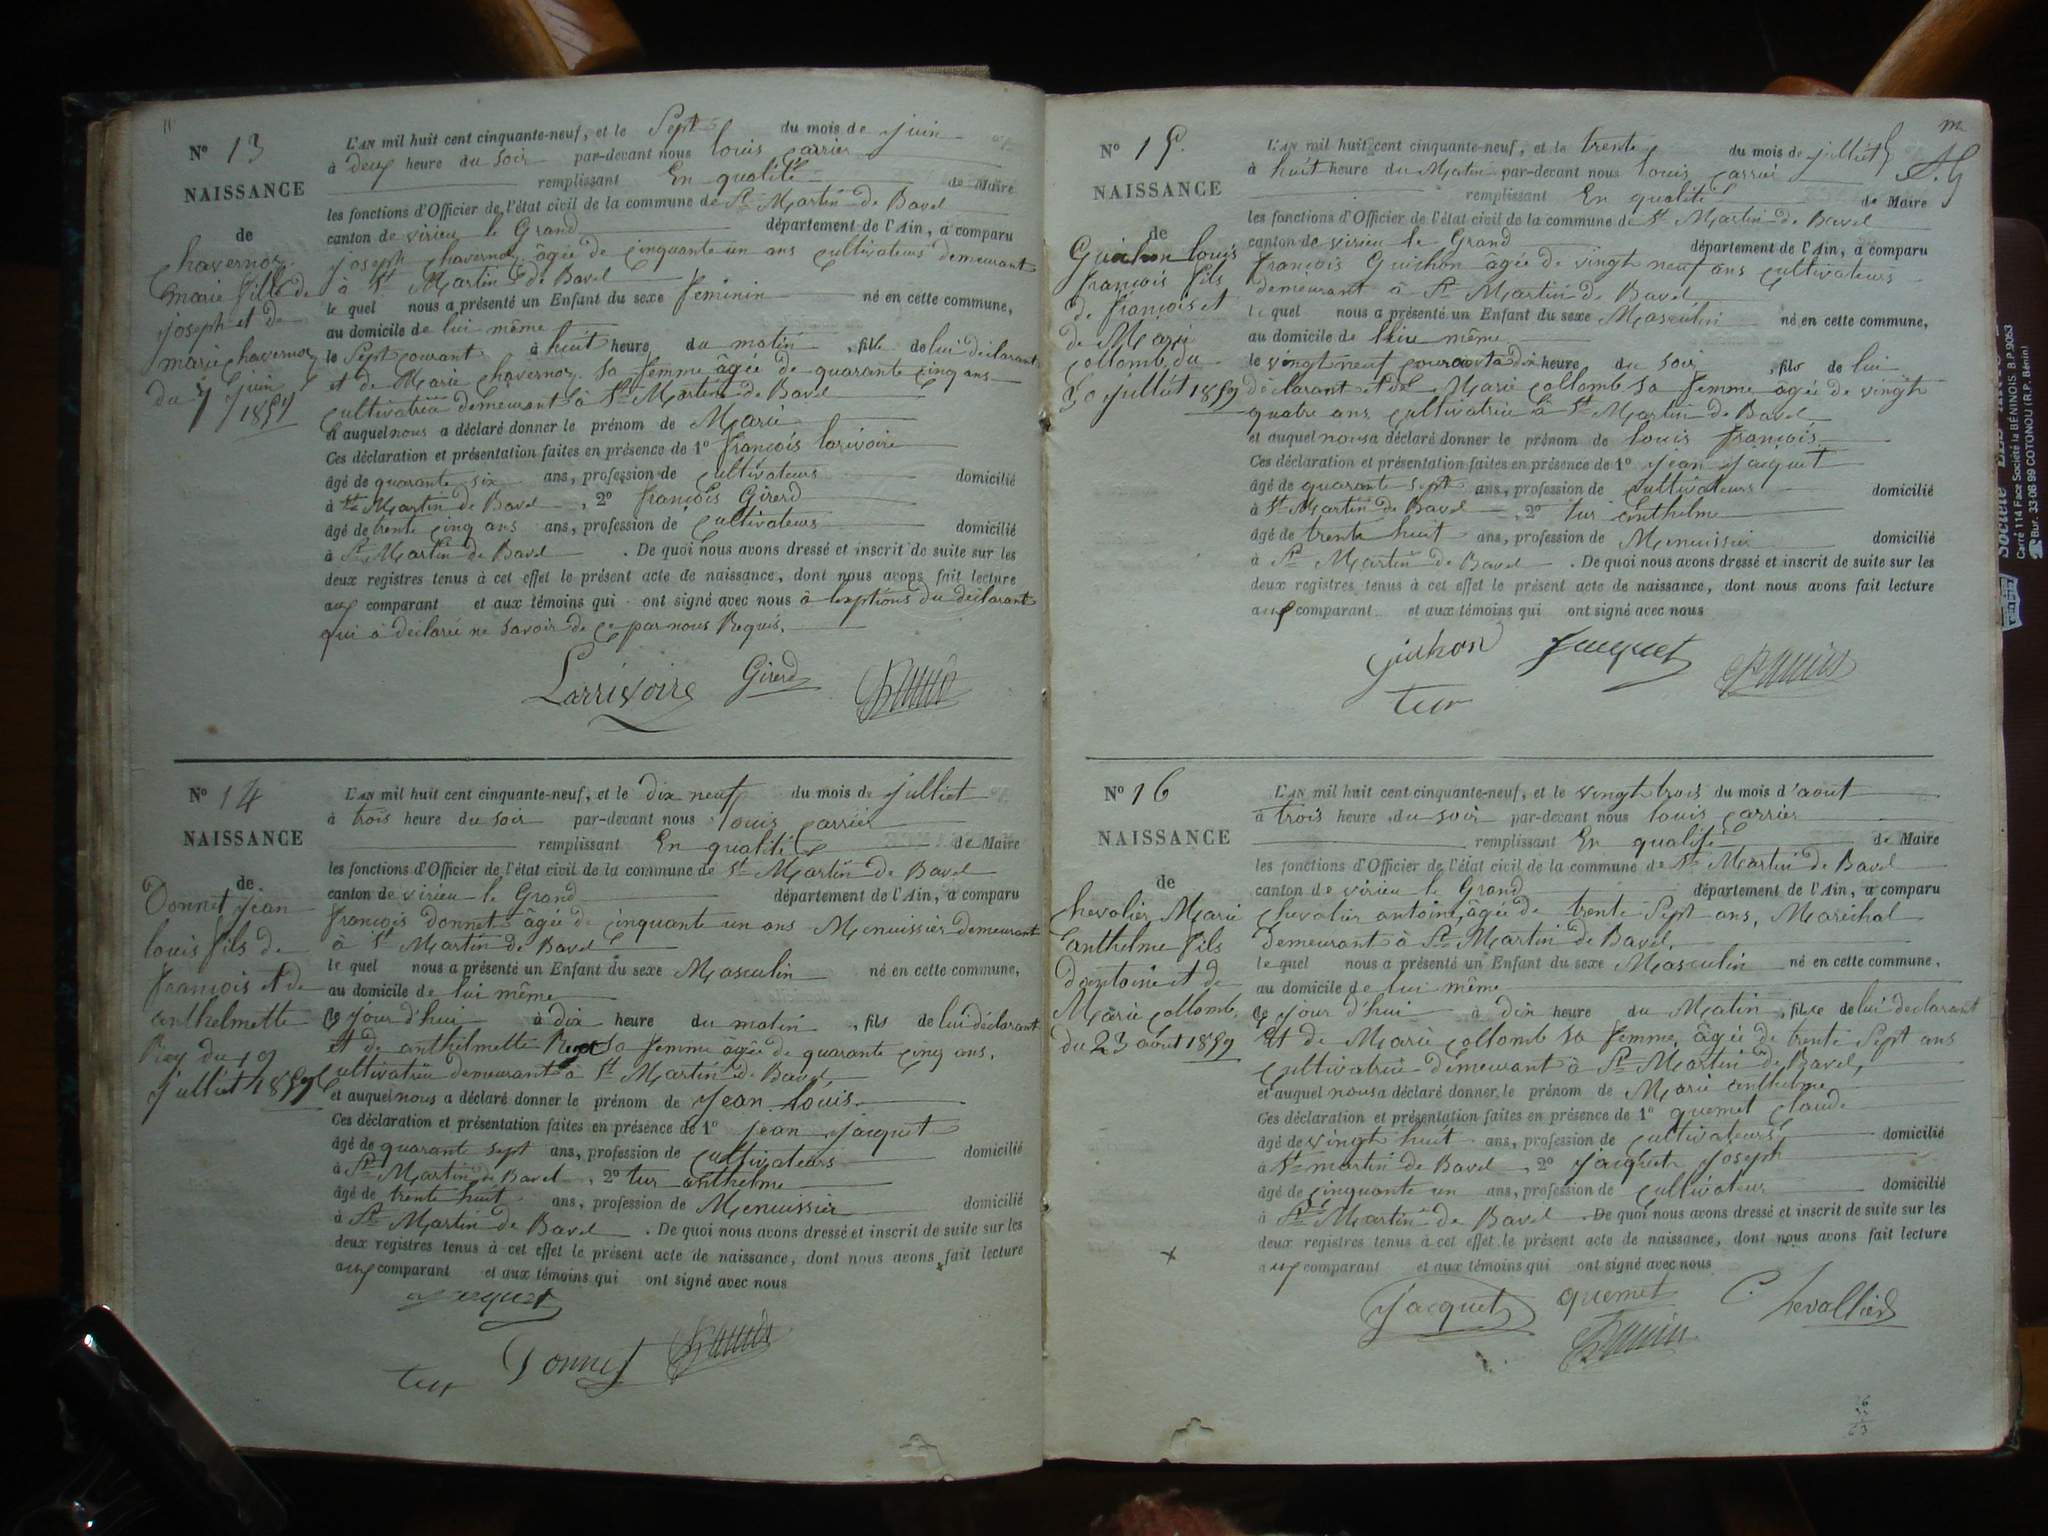 N° 13
NAISSANCE
de
Chavernoz
marie fille de
joseph et de
marie chavernoz
du 7 juin
1859
L'AN mil huit cent cinquante-neuf, et le Sept du mois de juin
à deux heure du soir par-devant nous louis carrier
remplissant En qualité de Maire
les fonctions d'Officier de l'état civil de la commune de St Martin de Bavel
canton de virieu le Grand département de l'Ain, a comparu
joseph chavernoz âgée de cinquante un ans cultivateurs demeurant
à St Martin de Bavel
le quel nous a présenté un Enfant du sexe feminin né en cette commune,
au domicile de lui même
le Sept courant à huit heure du matin, fille de lui déclarant
et de Marie chavernoz sa femme âgée de quarante cinq ans
cultivatrice demeurant à St Martin de Bavel
et auquel nous a déclaré donner le prénom de Marie
Ces déclaration et présentation faites en présence de 1° françois larivoire
âgé de quarante six ans, profession de cultivateurs domicilié
à St Martin de Bavel, 2° françois Girerd
âgé de trente cinq ans ans, profession de cultivateurs domicilié
à St Martin de Bavel. De quoi nous avons dressé et inscrit de suite sur les
deux registres tenus à cet effet le présent acte de naissance, dont nous avons fait lecture
aux comparant et aux témoins qui ont signé avec nous à lexptions du déclarant
qui à déclaré ne savoir de ce par nous Requis.
Larrivoire Girerd
N° 14
NAISSANCE
de
Donnet jean
louis fils de
françois et de
anthelmette
Rey du 19
julliet 1859
L'AN mil huit cent cinquante-neuf, et le dix neuf du mois de julliet
à trois heure du soir par-devant nous louis carrier
remplissant En qualité de Maire
les fonctions d'Officier de l'état civil de la commune de St Martin de Bavel
canton de virieu le Grand département de l'Ain, a comparu
françois donnet âgée de cinquante un ans Menuissier demeurant
à St Martin de Bavel
le quel nous a présenté un Enfant du sexe Masculin né en cette commune,
au domicile de lui même
ce jour d'hui à dix heure du matin, fils de lui déclarant
et de anthelmette sa femme âgée de quarante cinq ans,
cultivatrice demeurant à St Martin de Bavel,
et auquel nous a déclaré donner le prénom de jean louis.
Ces déclaration et présentation faites en présence de 1° jean jacquet
âgé de quarante sept ans, profession de cultivateurs domicilié
à St Martin de Bavel, 2° tur anthelme
âgé de trente huit ans, profession de Menuissier domicilié
à St Martin de Bavel. De quoi nous avons dressé et inscrit de suite sur les
deux registres tenus à cet effet le présent acte de naissance, dont nous avons fait lecture
aux comparant et aux témoins qui ont signé avec nous
jacquet
tur Donnet
N° 15.
NAISSANCE
de
Guichon louis
françois fils
de françois et
de Marie
collomb du
30 julliet 1859
L'AN mil huit cent cinquante-neuf, et le trente du mois de julliet
à huit heure du Matin par-devant nous louis carrier
remplissant En qualité de Maire
les fonctions d'Officier de l'état civil de la commune de St Martin de Bavel
canton de virieu le Grand département de l'Ain, a comparu
françois Guichon âgée de vingt neuf ans cultivateurs
demeurant à St Martin de Bavel
le quel nous a présenté un Enfant du sexe Masculin né en cette commune,
au domicile de lui même
le vingt neuf courant à dix heure du soir, fils de lui
déclarant et de Marie collomb sa femme âgée de vingt
quatre ans cultivatrice à St Martin de Bavel
et auquel nous a déclaré donner le prénom de louis françois
Ces déclaration et présentation faites en présence de 1° jean jacquet
âgé de quarante sept ans, profession de cultivateurs domicilié
à St Martin de Bavel, 2° tur anthelme
âgé de trente huit ans, profession de Menuissier domicilié
à St Martin de Bavel. De quoi nous avons dressé et inscrit de suite sur les
deux registres tenus à cet effet le présent acte de naissance, dont nous avons fait lecture
aux comparant et aux témoins qui ont signé avec nous
guichon jacquet
tur
N° 16
NAISSANCE
de
chevalier Marie
anthelme fils
d'antoine et de
Marie collomb
du 23 août 1859
L'AN mil huit cent cinquante-neuf, et le vingt trois du mois d'aout
à trois heure du soir par-devant nous louis carrier
remplissant En qualité de Maire
les fonctions d'Officier de l'état civil de la commune de St Martin de Bavel
canton de virieu le Grand département de l'Ain, a comparu
chevalier antoine âgée de trente sept ans, Maréchal
demeurant à St Martin de Bavel.
le quel nous a présenté un Enfant du sexe Masculin né en cette commune,
au domicile de lui même
ce jour d'hui à dix heure du Matin, fils de lui déclarant
Et de Marie collomb sa femme âgée de trente sept ans
cultivatrice demeurant à St Martin de Bavel,
et auquel nous a déclaré donner le prénom de Marie anthelme
Ces déclaration et présentation faites en présence de 1° quemet claude
âgé de vingt huit ans, profession de cultivateurs domicilié
à St martin de Bavel, 2° jacquet joseph
âgé de cinquante un ans, profession de cultivateur domicilié
à St Martin de Bavel. De quoi nous avons dressé et inscrit de suite sur les
deux registres tenus à cet effet le présent acte de naissance, dont nous avons fait lecture
aux comparant et aux témoins qui ont signé avec nous
jacquet quemet C. hevallier
Carré 114 Face Société la BÉNINOIS. B.P. 9063
Bur. 33 06 99 COTONOU (R.P. Bénin)